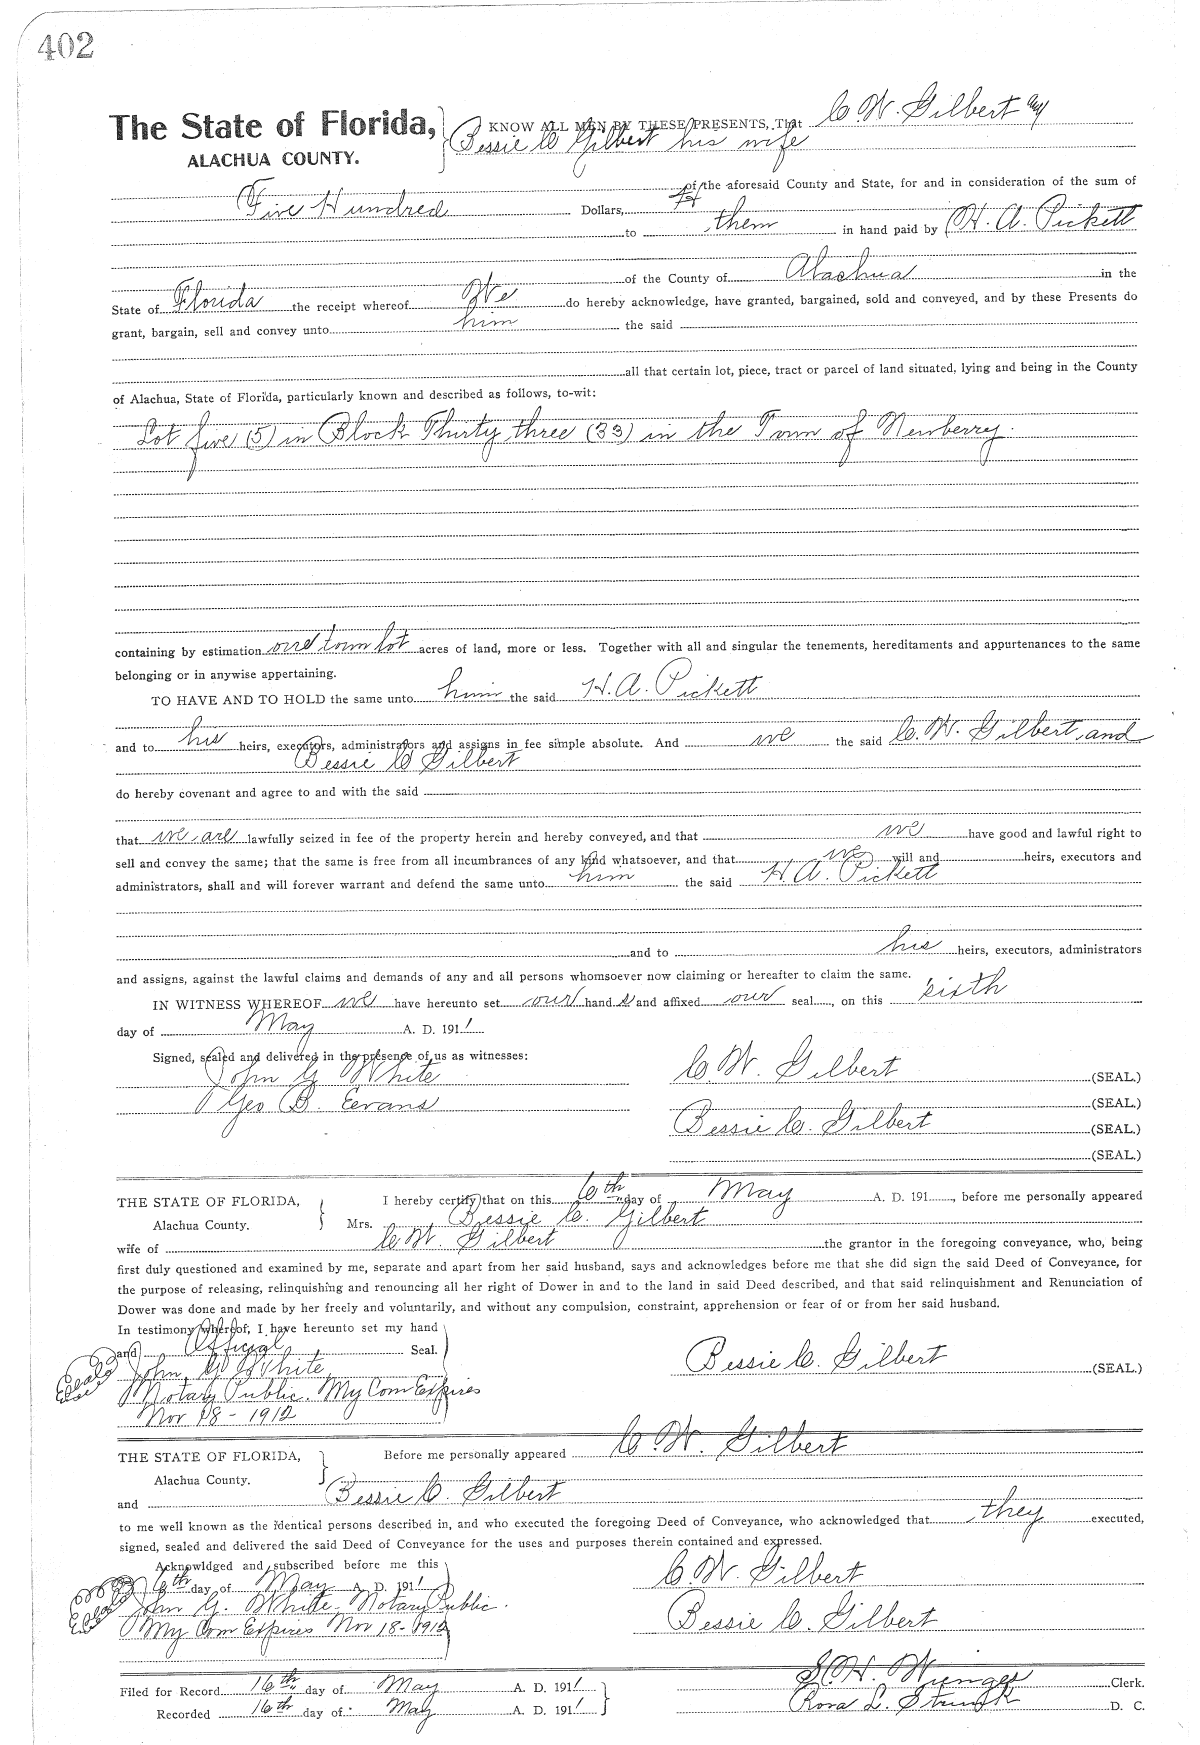 402
The State of Florida, KNOW ALL MEN BY THESE PRESENTS, That C. W. Gilbert and
ALACHUA COUNTY. Bessie C Gilbert his wife
of the aforesaid County and State, for and in consideration of the sum of
Five Hundred Dollars,
to them in hand paid by H. A. Pickett
of the County of Alachua in the
State of Florida the receipt whereof We do hereby acknowledge, have granted, bargained, sold and conveyed, and by these Presents do
grant, bargain, sell and convey unto him the said
all that certain lot, piece, tract or parcel of land situated, lying and being in the County
of Alachua, State of Florida, particularly known and described as follows, to-wit:
Lot five (5) in Block Thirty three (33) in the Town of Newberry.
containing by estimation one town lot acres of land, more or less. Together with all and singular the tenements, hereditaments and appurtenances to the same
belonging or in anywise appertaining.
TO HAVE AND TO HOLD the same unto him the said H. A. Pickett
and to his heirs, executors, administrators and assigns in fee simple absolute. And we the said C. W. Gilbert, and
Bessie C Gilbert
do hereby covenant and agree to and with the said
that we are lawfully seized in fee of the property herein and hereby conveyed, and that we have good and lawful right to
sell and convey the same; that the same is free from all incumbrances of any kind whatsoever, and that we will and heirs, executors and
administrators, shall and will forever warrant and defend the same unto him the said H. A. Pickett
and to his heirs, executors, administrators
and assigns, against the lawful claims and demands of any and all persons whomsoever now claiming or hereafter to claim the same.
IN WITNESS WHEREOF we have hereunto set our hands and affixed our seal, on this sixth
day of May A. D. 1911
Signed, sealed and delivered in the presence of us as witnesses:
John G White C. W. Gilbert (SEAL.)
Geo B. Eevans (SEAL.)
Bessie C. Gilbert (SEAL.)
(SEAL.)
THE STATE OF FLORIDA, I hereby certify that on this 6th day of May A. D. 191, before me personally appeared
Alachua County. Mrs. Bessie C. Gilbert
wife of C. W. Gilbert the grantor in the foregoing conveyance, who, being
first duly questioned and examined by me, separate and apart from her said husband, says and acknowledges before me that she did sign the said Deed of Conveyance, for
the purpose of releasing, relinquishing and renouncing all her right of Dower in and to the land in said Deed described, and that said relinquishment and Renunciation of
Dower was done and made by her freely and voluntarily, and without any compulsion, constraint, apprehension or fear of or from her said husband.
In testimony whereof, I have hereunto set my hand
and Official Seal. Bessie C. Gilbert (SEAL.)
John G White
Notary Public. My Com Expires
Nov 18 - 1912
THE STATE OF FLORIDA, Before me personally appeared C. W. Gilbert
Alachua County.
and Bessie C. Gilbert
to me well known as the identical persons described in, and who executed the foregoing Deed of Conveyance, who acknowledged that they executed,
signed, sealed and delivered the said Deed of Conveyance for the uses and purposes therein contained and expressed.
Acknowldged and subscribed before me this
6th day of May A. D. 1911 C. W. Gilbert
John G. White Notary Public.
My Com Expires Nov 18 - 1912 Bessie C. Gilbert
Filed for Record 16th day of May A. D. 1911 S. H. Wienges Clerk.
Recorded 16th day of May A. D. 1911 D. C.